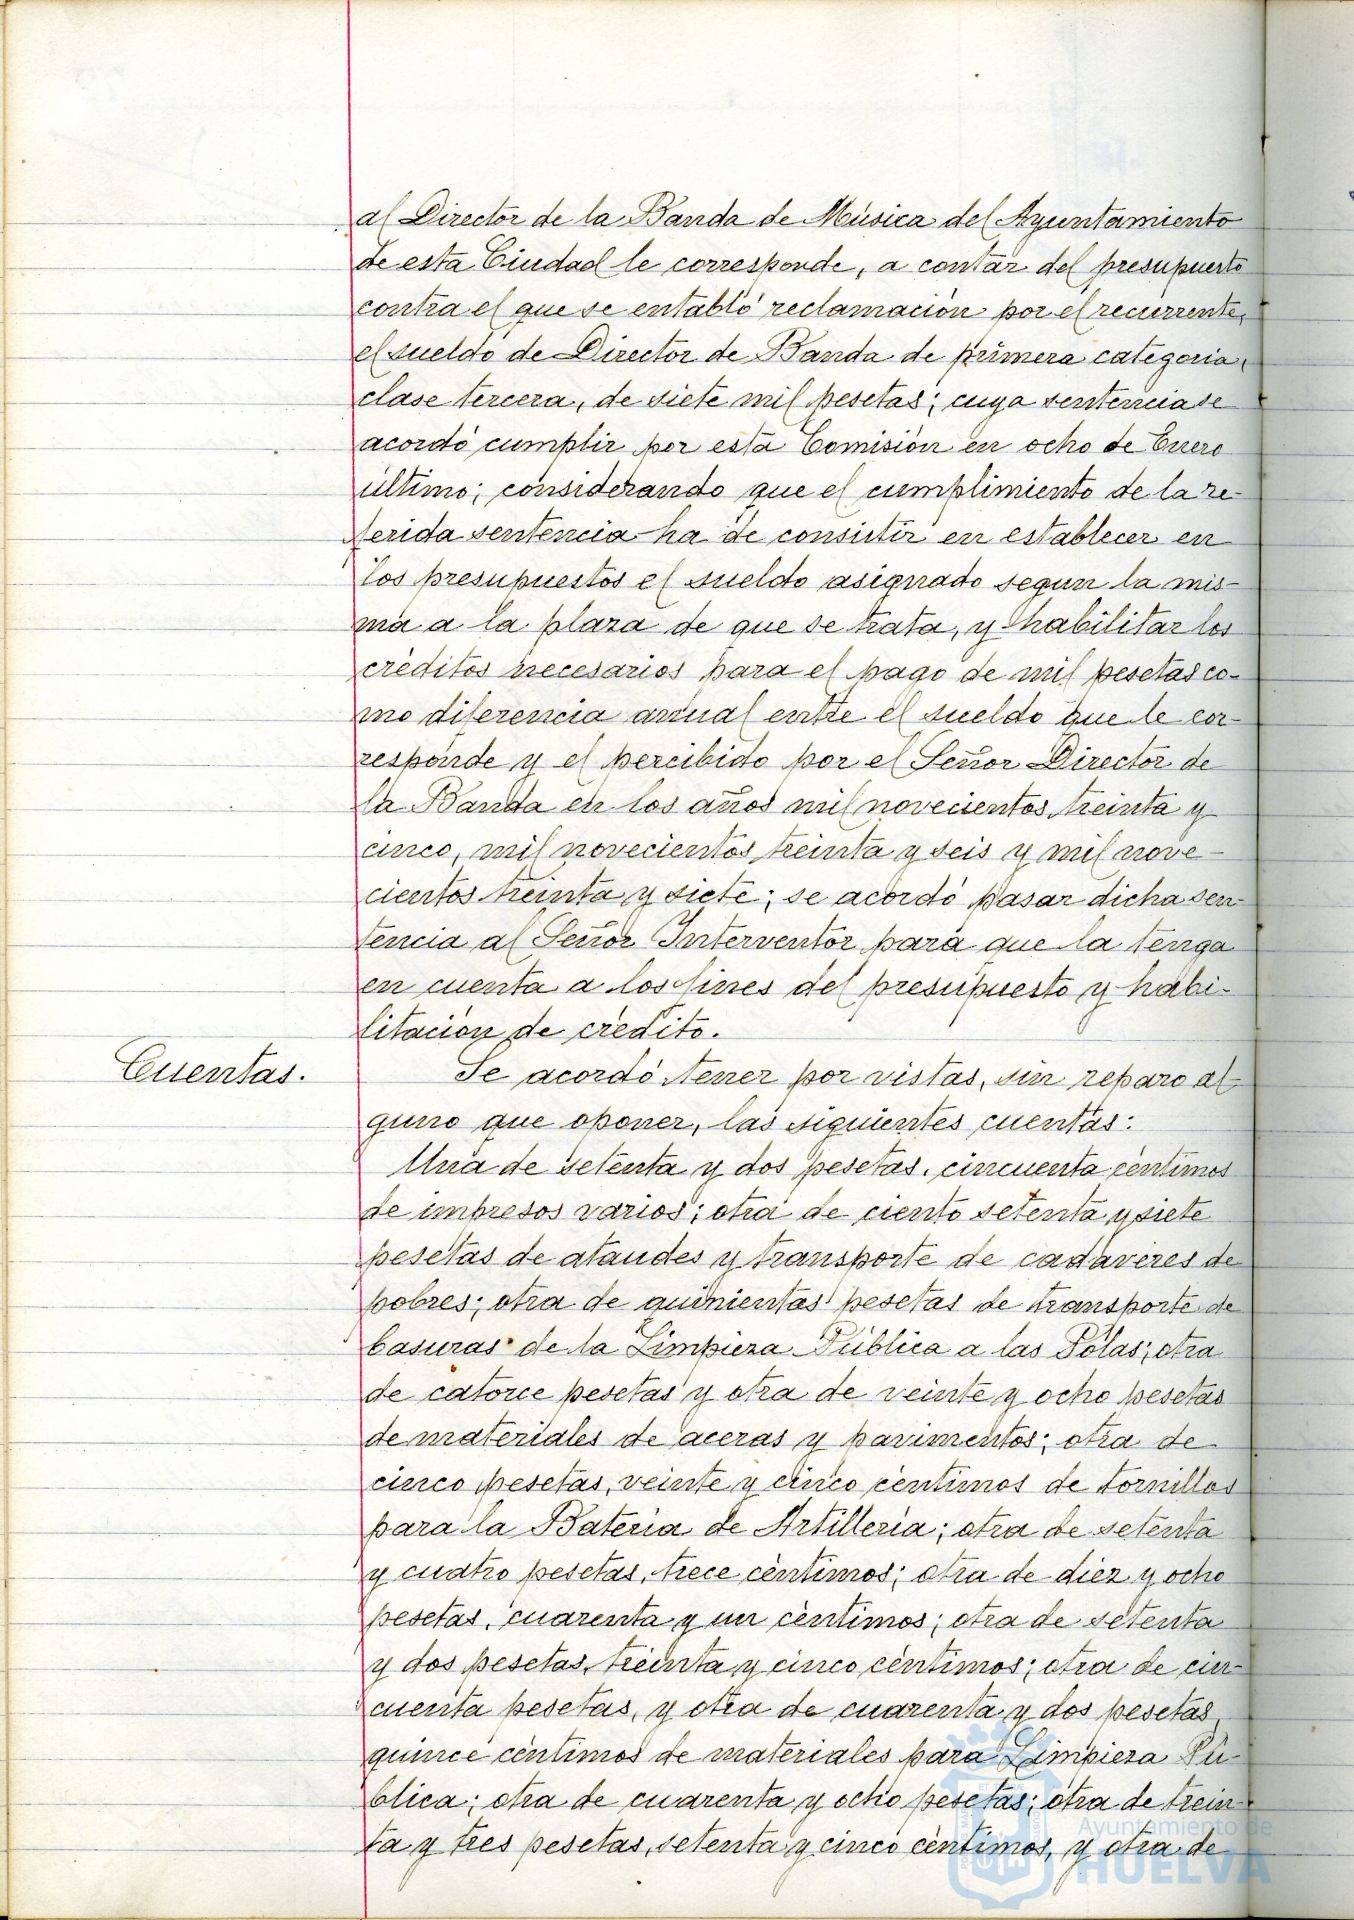 al Director de la Banda de Música del Ayuntamiento
de esta Ciudad le corresponde, a contar del presupuesto
contra el que se entabló reclamación por el recurrente,
el sueldo de Director de Banda de primera categoría,
clase tercera, de siete mil pesetas; cuya sentencia se
acordó cumplir por esta Comisión en ocho de Enero
último; considerando que el cumplimiento de la re-
ferida sentencia ha de consistir en establecer en
los presupuestos el sueldo asignado segun la mis-
ma a la plaza de que se trata, y habilitar los
créditos necesarios para el pago de mil pesetas co-
mo diferencia anual entre el sueldo que le cor-
responde y el percibido por el Señor Director de
la Banda en los años mil novecientos treinta y
cinco, mil novecientos treinta y seis y mil nove-
cientos treinta y siete; se acordó pasar dicha sen-
tencia al Señor Interventor para que la tenga
en cuenta a los fines del presupuesto y habi-
litación de crédito.
Cuentas.
Se acordó tener por vistas, sin reparo al-
guno que oponer, las siguientes cuentas:
Una de setenta y dos pesetas, cincuenta céntimos
de impresos varios; otra de ciento setenta y siete
pesetas de ataudes y transporte de cadáveres de
pobres; otra de quinientas pesetas de transporte de
basuras de la Limpieza Pública a las Polas; otra
de catorce pesetas y otra de veinte y ocho pesetas
de materiales de aceras y pavimentos; otra de
cinco pesetas, veinte y cinco céntimos de tornillos
para la Batería de Artillería; otra de setenta
y cuatro pesetas, trece céntimos; otra de diez y ocho
pesetas, cuarenta y un céntimos; otra de setenta
y dos pesetas, treinta y cinco céntimos; otra de cin-
cuenta pesetas, y otra de cuarenta y dos pesetas,
quince céntimos de materiales para Limpieza Pú-
blica; otra de cuarenta y ocho pesetas; otra de trein-
ta y tres pesetas, setenta y cinco céntimos, y otra de
Ayuntamiento de
HUELVA